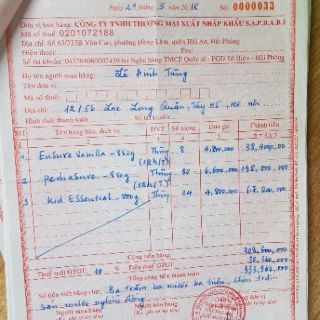 Ngày 21 tháng 5 năm 2018 Số: 0000033
Đơn vị bán hàng: CÔNG TY TNHH THƯƠNG MẠI XUẤT NHẬP KHẨU S.A.P.B.A.B.I
Mã số thuế: 0201072188
Địa chỉ: Số 63/333B Văn Cao, phường Đằng Lâm, quận Hải An, Hải Phòng
Điện thoại: Fax:
Số tài khoản: tại Ngân hàng TMCP Quốc tế - PGD Tô Hiệu - Hải Phòng
Họ tên người mua hàng: Lê Anh Tùng
Tên đơn vị:
Địa chỉ: 12/56 Lạc Long Quân, Tây Hồ, Hà Nội
Hình thức thanh toán:
Tên hàng hóa, dịch vụ ĐVT Số lượng Đơn giá Thành tiền
1 Ensure Vanilla - 850g Thùng 8 4,800,000 38,400,000
(12h/T)
2 Pediasure - 850g Thùng 30 6,600,000 198,000,000
(12h/T)
3 Kid Essential - 800g Thùng 14 4,800,000 67,200,000
Cộng tiền hàng:
Thuế suất GTGT: 10 % Tiền thuế GTGT:
Tổng cộng tiền thanh toán
Số tiền viết bằng chữ: Ba Trăm ba mươi ba triệu, Chín Trăm
sáu mươi nghìn đồng
Người mua hàng